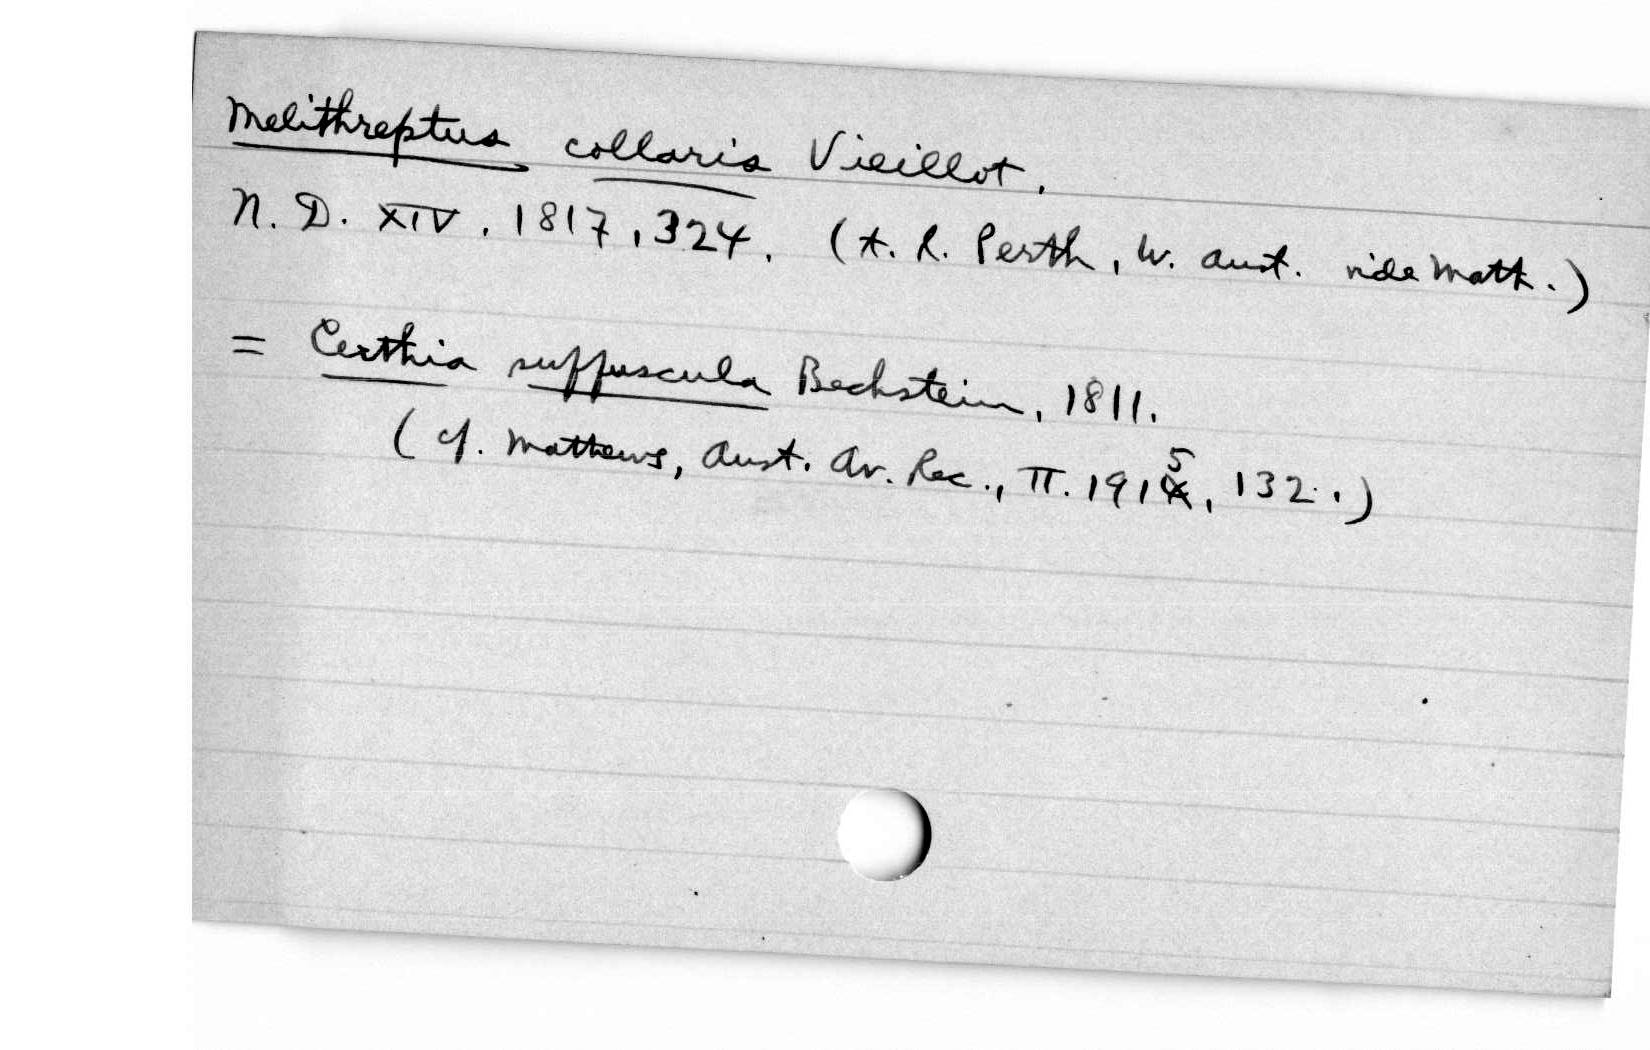 Melithreptus collaris Vieillot.
N. D. XIV, 1817, 324. (t. l. Perth, W. Aust. vide Math.)
= Certhia suffuscula Bechstein, 1811.
(cf. Mathews, Aust. Av. Rec., II. 1915, 132.)